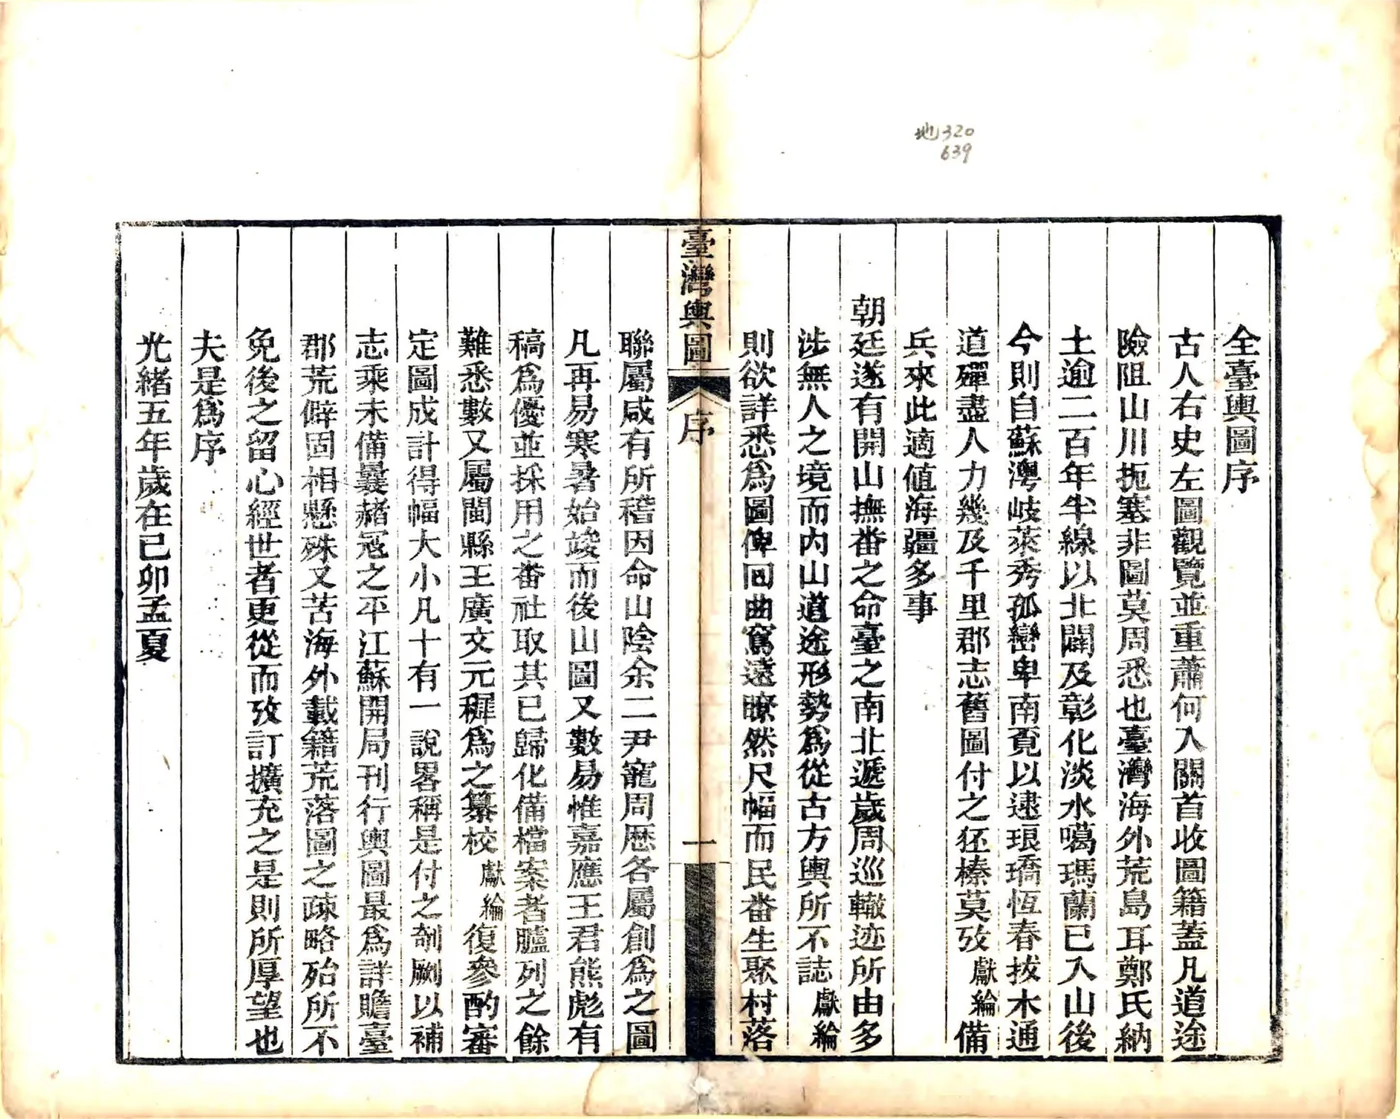 地320
639
全臺輿圖序
古人右史左圖觀覽並重蕭何入關首收圖籍蓋凡道途
險阻山川扼塞非圖莫周悉也臺灣海外荒島耳鄭氏納
土逾二百年半線以北闢及彰化淡水噶瑪蘭已入山後
今則自蘇澳岐萊秀孤巒卑南覓以逮琅𤩝恆春拔木通
道殫盡人力幾及千里郡志舊圖付之狉榛莫攷獻綸備
兵來此適値海疆多事
朝廷遂有開山撫番之命臺之南北遞歲周巡轍迹所由多
涉無人之境而內山道途形勢爲從古方輿所不誌獻綸
則欲詳悉爲圖俾回曲寫遠瞭然尺幅而民番生聚村落
臺灣輿圖 序 一
聯屬咸有所稽因命山陰余二尹寵周歷各屬創爲之圖
凡再易寒暑始竣而後山圖又數易惟嘉應王君熊彪有
稿爲優並採用之番社取其已歸化備檔案者臚列之餘
難悉數又屬閩縣王廣文元穉爲之纂校獻綸復參酌審
定圖成計得幅大小凡十有一說畧稱是付之剞劂以補
志乘未備曩赭寇之平江蘇開局刊行輿圖最爲詳贍臺
郡荒僻固相懸殊又苦海外載籍荒落圖之疎略殆所不
免後之留心經世者更從而攷訂擴充之是則所厚望也
夫是爲序
光緒五年歲在己卯孟夏